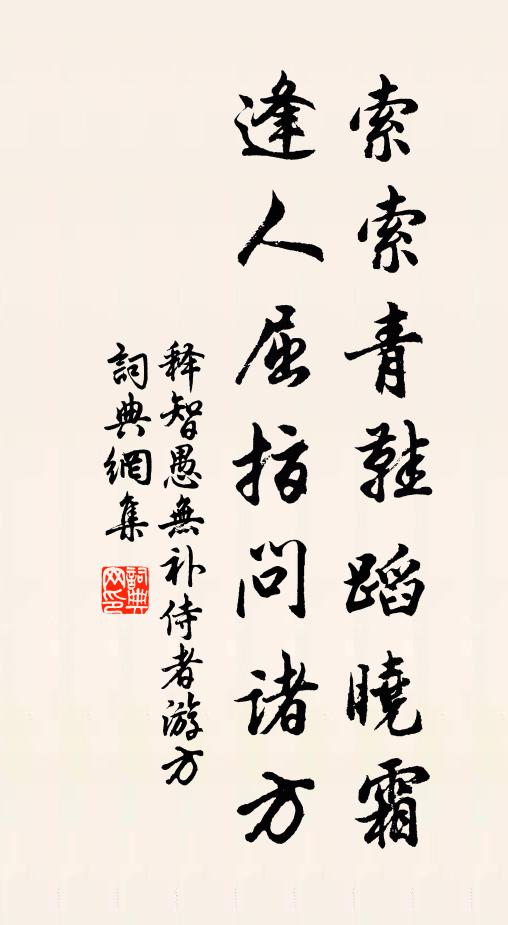 索索青鞋蹈曉霜
逢人屈指問诸方
释智愚無补侍者游方
詞典網集
詞典網印